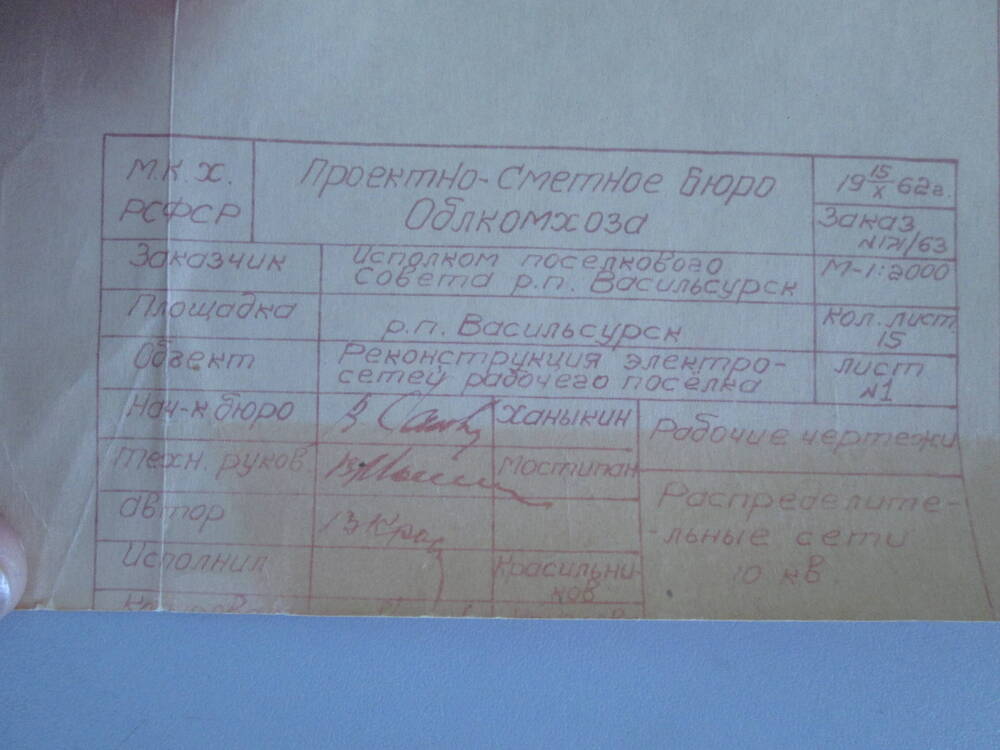 М.К.Х.
РСФСР
Проектно-Сметное Бюро
Облкомхоза
19 15/X 62г.
Заказ
N171/63
Заказчик
Исполком поселкового
Совета р.п. Васильсурск
М-1:2000
Площадка
р.п. Васильсурск
кол. лист.
15
Объект
Реконструкция электро-
сетей рабочего посёлка
лист
N1
Нач-к бюро
Ханыкин
Рабочие чертежи
Техн. руков.
Мостипан
Распределите-
-льные сети
10 кв.
Автор
Исполнил
Красильни-
ков